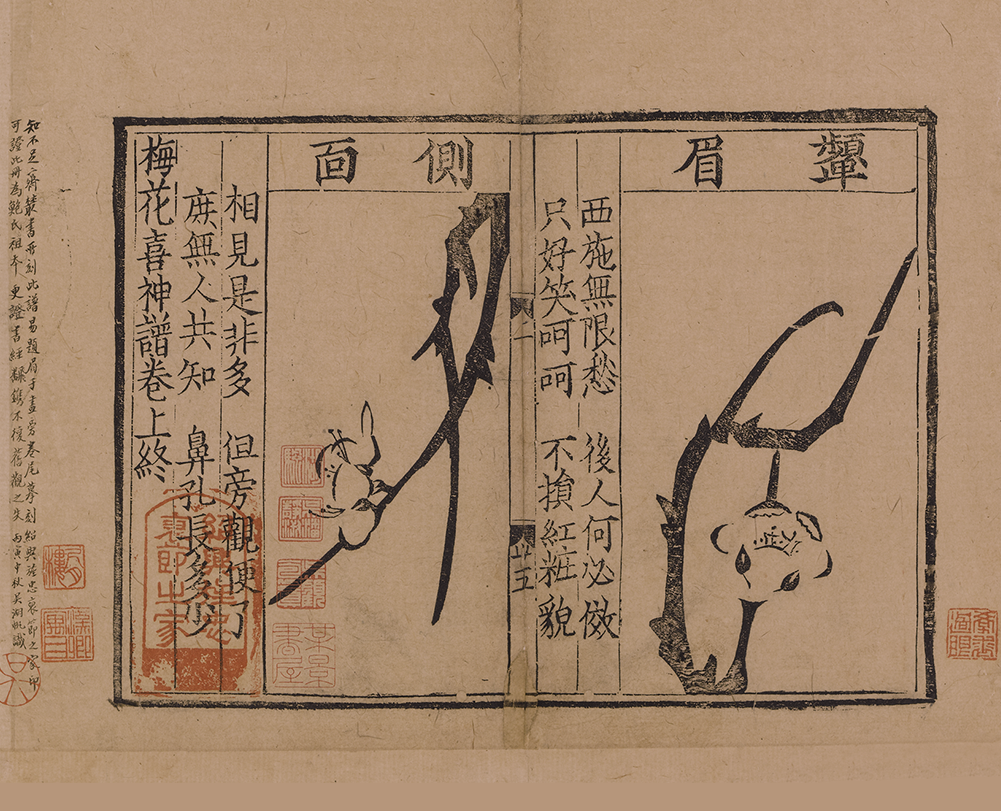 顰眉
西施無限愁 後人何必傚
只好笑呵呵 不損紅粧貌
廿五
側面
相見是非多 但旁觀便了
庶無人共知 鼻孔長多少
梅花喜神譜卷上終
知不足齋叢書再刻此譜易題眉于畫旁卷尾摹刻紹興忠裒節之家印
可證此册為鮑氏祖本更證書經翻鐫不復舊觀之矣 丙寅中秋吳湖帆識